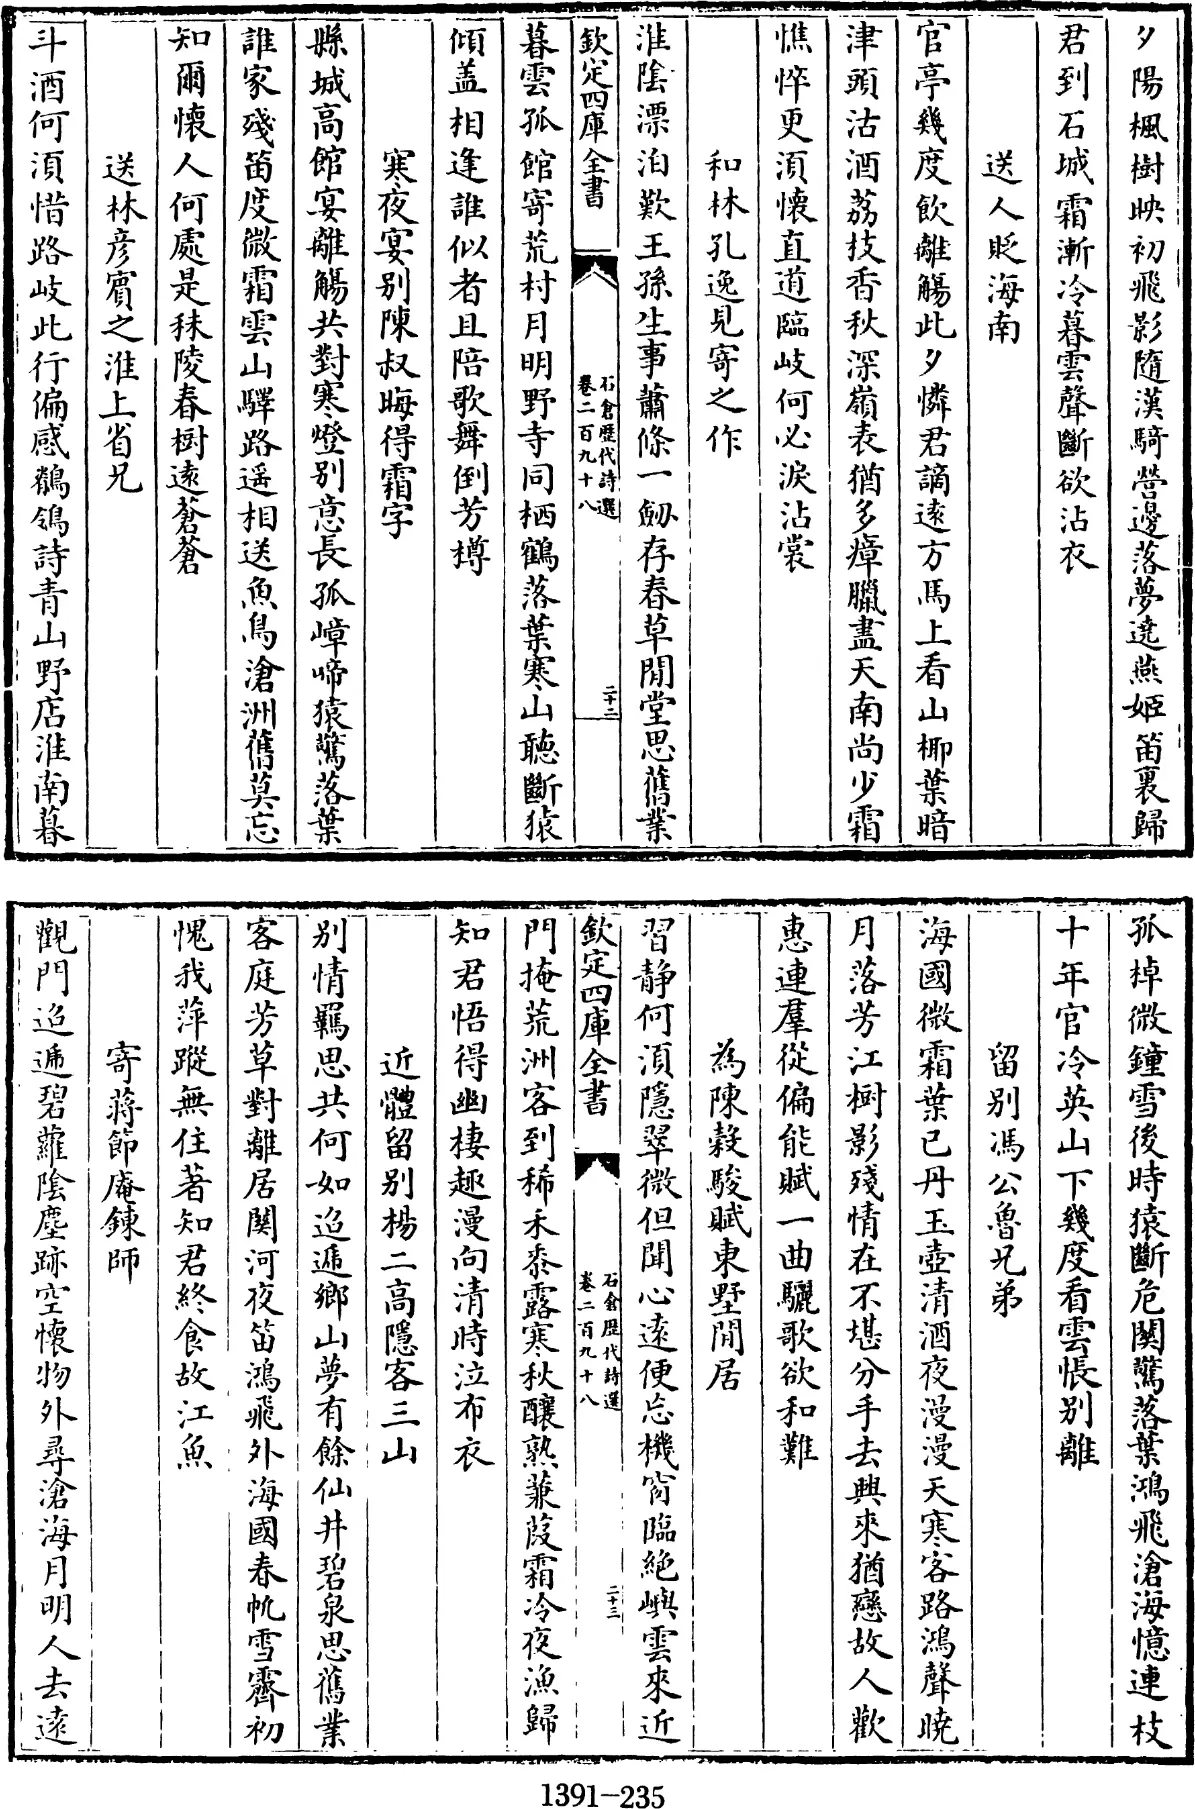 夕陽楓樹映初飛影隨漢騎營邊落夢遶燕姬笛裏歸
君到石城霜漸冷暮雲聲斷欲沾衣
送人貶海南
官亭幾度飲離觴此夕憐君謫遠方馬上看山栁葉暗
津頭沽酒荔枝香秋深嶺表猶多瘴臘盡天南尚少霜
憔悴更須懷直道臨岐何必淚沾裳
和林孔逸見寄之作
淮陰漂泊歎王孫生事蕭條一劒存春草閒堂思舊業
欽定四庫全書
石倉歴代詩選
卷二百九十八
二十二
暮雲孤館寄荒村月明野寺同栖鶴落葉寒山聽斷猿
傾盖相逢誰似者且陪歌舞倒芳樽
寒夜宴别陳叔晦得霜字
縣城高館宴離觴共對寒燈别意長孤嶂啼猿驚落葉
誰家殘笛度微霜雲山驛路遥相送魚鳥滄洲舊莫忘
知爾懷人何處是秣陵春樹遠蒼蒼
送林彦賔之淮上省兄
斗酒何須惜路岐此行偏感鶺鴒詩青山野店淮南暮
孤棹微鐘雪後時猿斷危闗驚落葉鴻飛滄海憶連枝
十年官冷英山下幾度看雲悵别離
留别馮公魯兄弟
海國微霜葉已丹玉壺清酒夜漫漫天寒客路鴻聲曉
月落芳江樹影殘情在不堪分手去興來猶戀故人歡
惠連羣從偏能賦一曲驪歌欲和難
為陳榖駿賦東墅閒居
習静何須隱翠微但聞心遠便忘機窗臨絶嶼雲來近
欽定四庫全書
石倉歴代詩選
卷二百九十八
二十三
門掩荒洲客到稀禾黍露寒秋釀熟蒹葭霜冷夜漁歸
知君悟得幽棲趣漫向清時泣布衣
近體留别楊二高隱客三山
别情羈思共何如迢遞鄉山夢有餘仙井碧泉思舊業
客庭芳草對離居闗河夜笛鴻飛外海國春帆雪霽初
愧我萍蹤無住著知君終食故江魚
寄蔣節庵鍊師
觀門迢遞碧蘿陰塵跡空懷物外尋滄海月明人去遠
1391-235